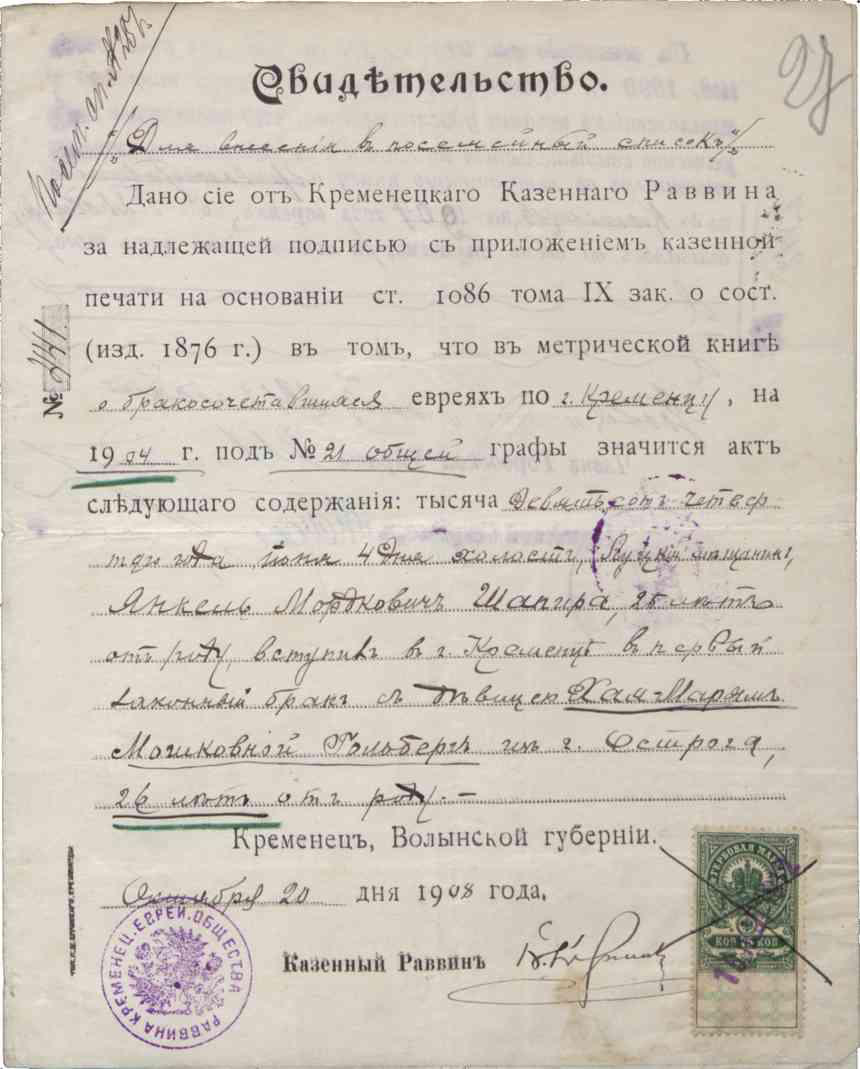 27
Свидѣтельство.
„Для внесенія въ посемейный списокъ"
Дано сіе отъ Кременецкаго Казеннаго Раввина
за надлежащей подписью съ приложеніемъ казенной
печати на основаніи ст. 1086 тома IX зак. о сост.
(изд. 1876 г.) въ томъ, что въ метрической книгѣ
№ 441
о бракосочетавшихся евреяхъ по г. Кременцу, на
1904 г. подъ № 21 общей графы значится актъ
слѣдующаго содержанія: тысяча девятьсотъ четвер
таго года іюня 4 дня холостъ, Луцкій мѣщанинъ,
Янкель Мордковичъ Шапира, 25 лѣтъ
отъ роду, вступилъ въ г. Кременцѣ въ первый
законный бракъ съ дѣвицею Хая-Марьямъ
Мошковной Гольбергъ изъ г. Острога,
26 лѣтъ отъ роду.-
Кременецъ, Волынской губерніи.
Октября 20 дня 1908 года.
Казенный Раввинъ
РАВВИНА КРЕМЕНЕЦ. ЕВРЕЙ. ОБЩЕСТВА
ГЕРБОВАЯ МАРКА
75 КОП